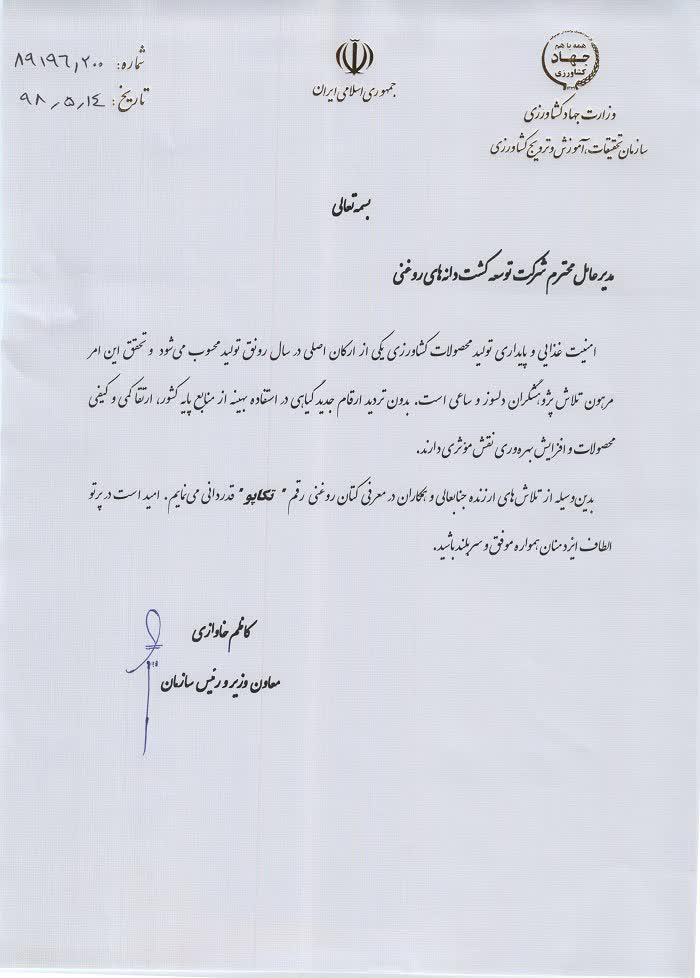 همه با هم
جهاد
کشاورزی
وزارت جهاد کشاورزی
سازمان تحقیقات، آموزش و ترویج کشاورزی
جمهوری اسلامی ایران
شماره: ۸۹۱۹۶٫۲۰۰
تاریخ: ۹۸٫۵٫۱۴
بسمه تعالی
مدیرعامل محترم شرکت توسعه کشت دانه های روغنی
امنیت غذایی و پایداری تولید محصولات کشاورزی یکی از ارکان اصلی در سال رونق تولید محسوب می‌شود و تحقق این امر
مرهون تلاش پژوهشگران دلسوز و ساعی است. بدون تردید ارقام جدید گیاهی در استفاده بهینه از منابع پایه کشور، ارتقا کمی و کیفی
محصولات و افزایش بهره‌وری نقش مؤثری دارند.
بدین‌وسیله از تلاش های ارزنده جنابعالی و همکاران در معرفی کتان روغنی رقم " تکاپو" قدردانی می‌نمایم. امید است در پرتو
الطاف ایزد منان همواره موفق و سربلند باشید.
کاظم خاوازی
معاون وزیر و رئیس سازمان